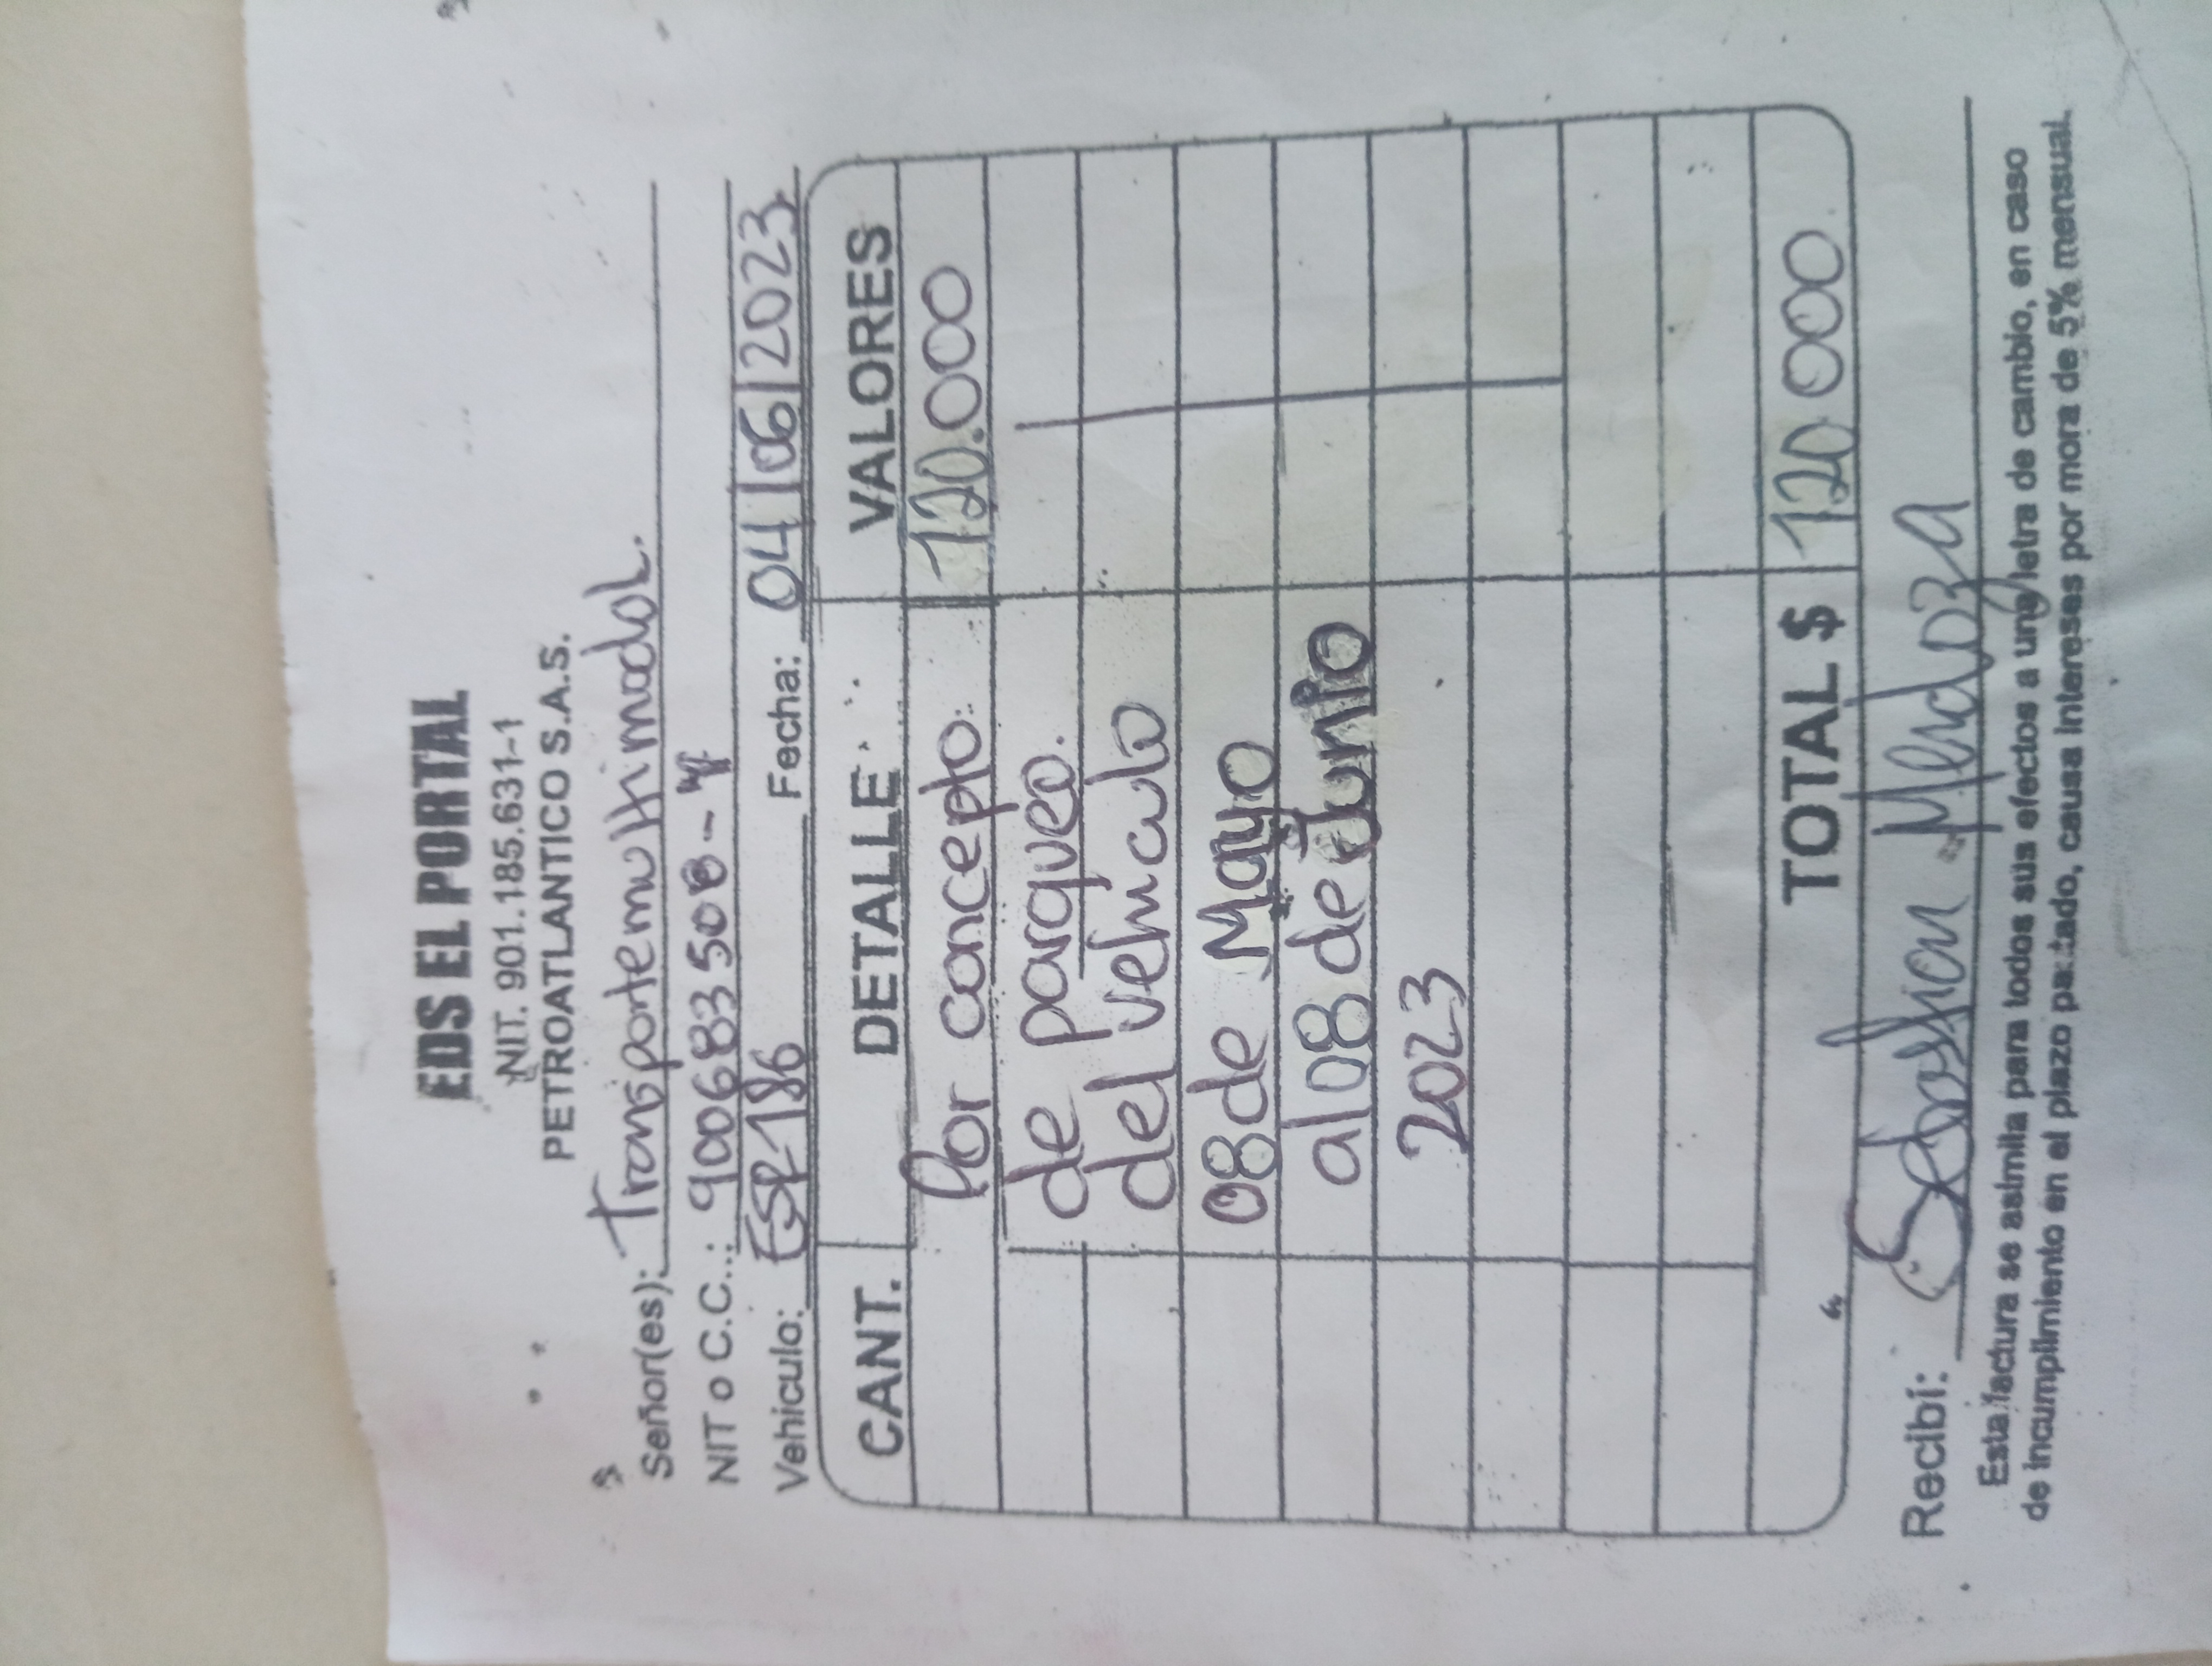 EDS EL PORTAL
NIT. 901.185.631-1
PETROATLANTICO S.A.S.
Señor(es): Transportemultimodal.
NIT o C.C.: 900683508-4
Vehiculo: ESP186 Fecha: 04 06 2023
CANT. DETALLE VALORES
Por concepto 120.000
de parqueo.
del vehiculo
08 de Mayo
al 08 de Junio
2023
TOTAL $ 120 000
Recibí: Sebastian Mendoza
Esta factura se asimila para todos sus efectos a una letra de cambio, en caso
de incumplimiento en el plazo pactado, causa intereses por mora de 5% mensual.